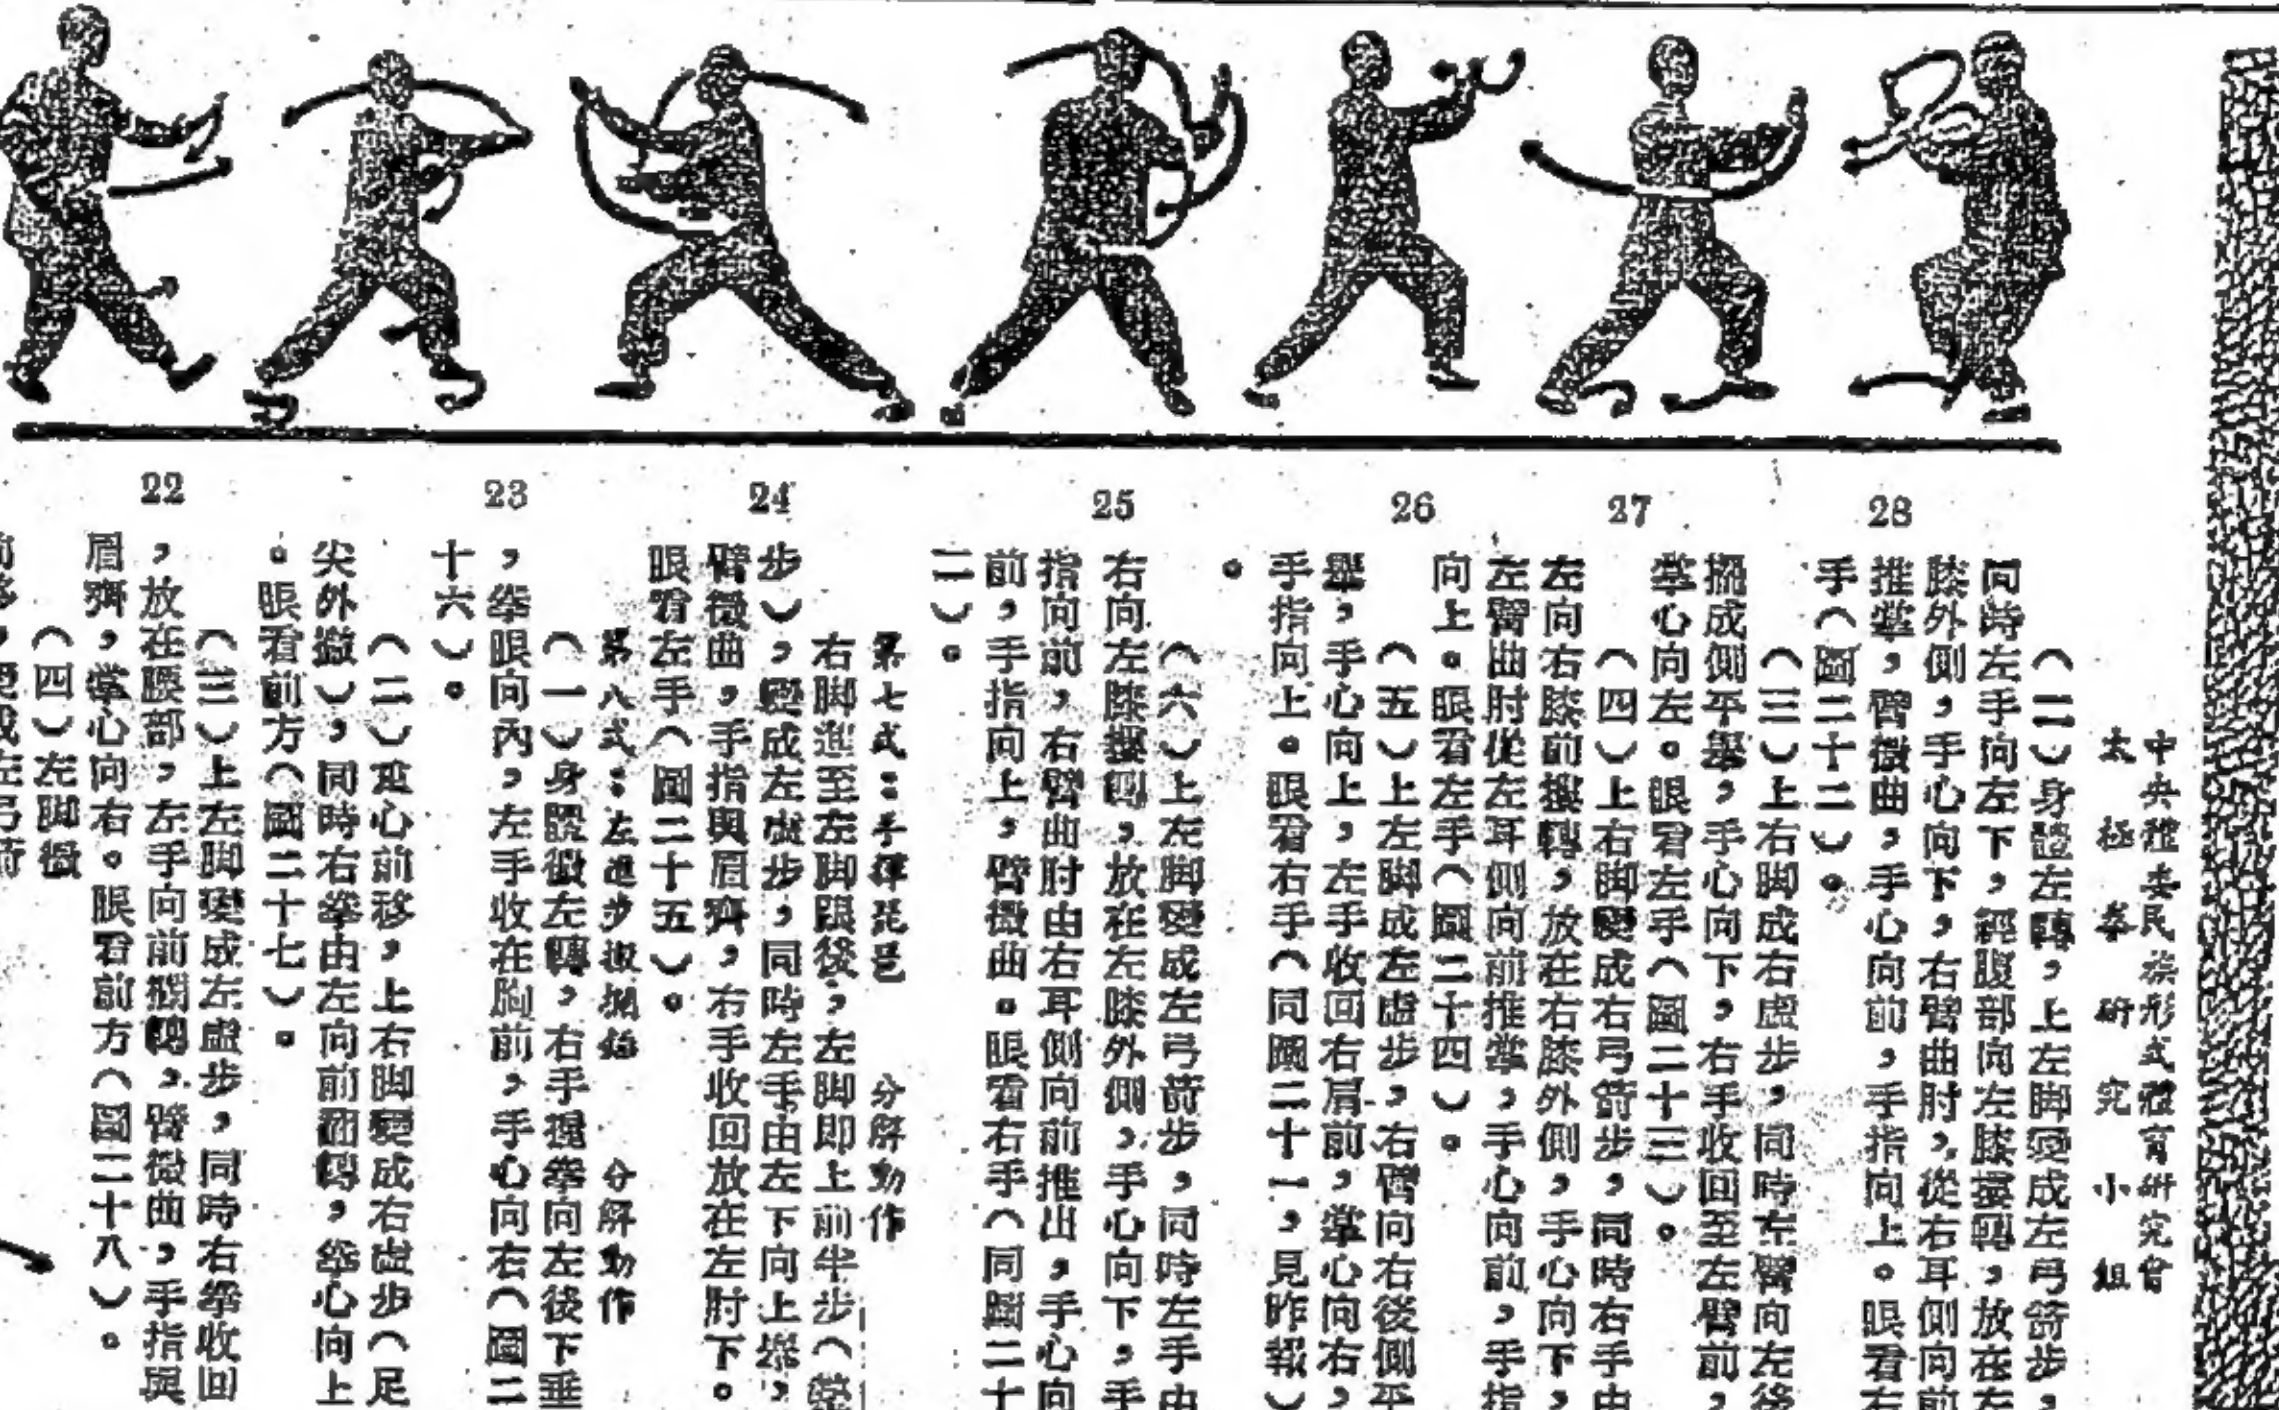 22
23
24
25
26
27
28
中央體委民族形式體育研究會
太極拳研究小組
（二）身體左轉，上左脚變成左弓箭步，
同時左手向左下，經腹部向左膝摟轉，放在左
膝外側，手心向下，右臂曲肘，從右耳側向前
推掌，臂微曲，手心向前，手指向上。眼看右
手（圖二十二）。
（三）上右脚成右虛步，同時左臂向左後
成側平舉，手心向下，右手收回至左臂前，
掌心向左。眼看左手（圖二十三）。
（四）上右脚變成右弓箭步，同時右手由
左向右膝前摟轉，放在右膝外側，手心向下，
左臂曲肘從左耳側向前推掌，手心向前，手指
向上。眼看左手（圖二十四）。
（五）上左脚成左虛步，右臂向右後側平
舉，手心向上，左手收回右肩前，掌心向右，
手指向上。眼看右手（同圖二十一，見昨報）
。
（六）上左脚變成左弓箭步，同時左手由
右向左膝摟，放在左膝外側，手心向下，手
指向前，右臂曲肘由右耳側向前推出，手心向
前，手指向上，臂微曲。眼看右手（同圖二十
二）。
第七式：手揮琵琶　分解動作
右脚進至左脚跟後，左脚即上前半步（
步），變成左虛步，同時左手由左下向上，
臂微曲，手指與眉齊，右手收回放在左肘下。
眼看左手（圖二十五）。
第八式：左進步搬攔　分解動作
（一）身體微左轉，右手握拳向左後下垂
，拳眼向內，左手收在胸前，手心向右（圖二
十六）。
（二）重心前移，上右脚變成右虛步（足
尖外撇），同時右拳由左向前翻，拳心向上
。眼看前方（圖二十七）。
（三）上左脚變成左虛步，同時右拳收回
，放在腰部，左手向前，臂微曲，手指與
眉齊，掌心向右。眼看前方（圖二十八）。
（四）左脚微
前移，變成左弓箭